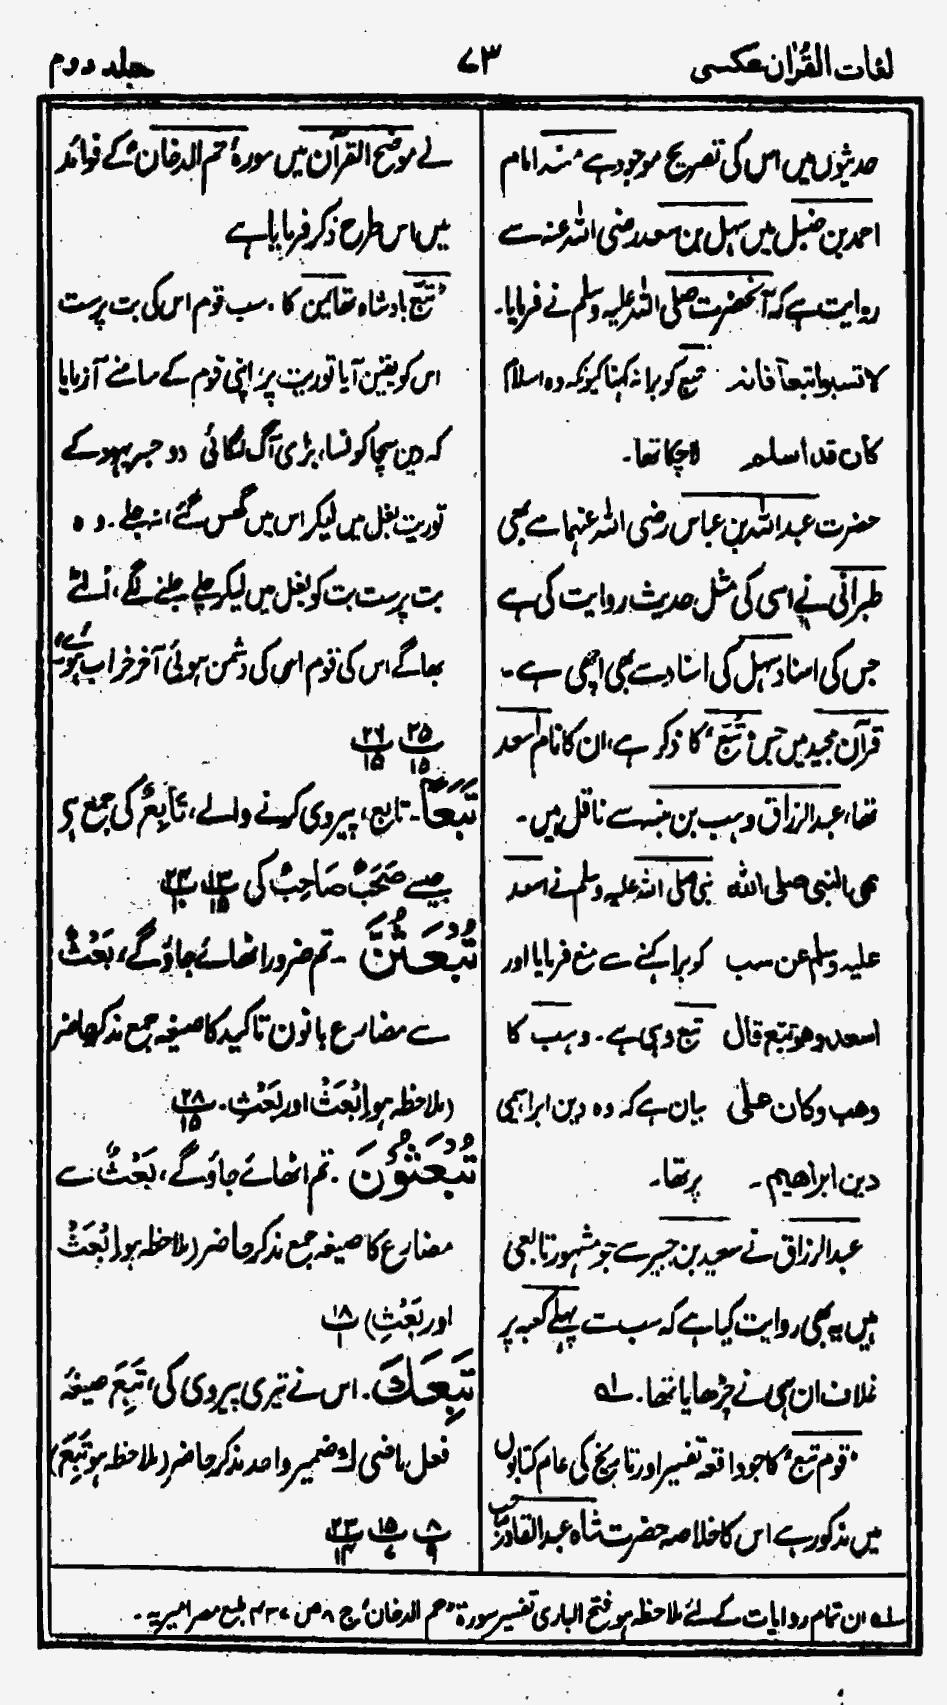 لغات القرآن عکسی
۷۳
جلد دوم
حدیثوں میں اس کی تصریح موجود ہے مسند امام
احمد بن حنبل میں سہل بن سعد رضی اللہ عنہ سے
روایت ہے کہ آنحضرت صلی اللہ علیہ وسلم نے فرمایا۔
لا تسبوا تبعا فانہ تبع کو برا نہ کہنا کیونکہ وہ اسلام
کان قد اسلم لاچکا تھا۔
حضرت عبد اللہ بن عباس رضی اللہ عنہما سے بھی
طبرانی نے اسی کی مثل حدیث روایت کی ہے
جس کی اسناد سہل کی اسناد سے بھی اچھی ہے۔
قرآن مجید میں جس "تُبَّع" کا ذکر ہے، ان کا نام اسعد
تھا، عبد الرزاق وہب بن منبہ سے ناقل ہیں۔
نھی النبی صلی اللہ نبی صلی اللہ علیہ وسلم نے اسعد
علیہ وسلم عن سب کو برا کہنے سے منع فرمایا اور
اسعد وھو تبع قال تبع وہی ہے۔ وہب کا
وھب وکان علی بیان ہے کہ وہ دین ابراہیمی
دین ابراھیم۔ پر تھا۔
عبد الرزاق نے سعید بن جبیر سے جو مشہور تابعی
ہیں یہ بھی روایت کیا ہے کہ سب سے پہلے کعبہ پر
غلاف ان ہی نے چڑھایا تھا۔ لہ
"قوم تبع" کا جو واقعہ تفسیر اور تاریخ کی عام کتابوں
میں مذکور ہے اس کا خلاصہ حضرت شاہ عبد القادر صاحب
نے موضح القرآن میں سورۂ "حم الدخان" کے فوائد
میں اس طرح ذکر فرمایا ہے
"تبّع بادشاہ تھا یمن کا۔ سب قوم اس کی بت پرست
اس کو یقین آیا توریت پر، اپنی قوم کے سامنے آزمایا
کہ دین سچا کونسا، بڑی آگ لگائی دو حبر یہود کے
توریت بغل میں لیکر اس میں گھس گئے اور نہ جلے۔ وہ
بت پرست بت کو بغل میں لیکر چلے جلنے لگے، اُلٹے
بھاگے اس کی قوم اسی کی دشمن ہوئی آخر خراب ہوئے"
۲۵ ۱۵ ۲۶ ۱۵
تَبَعًا۔ تابع، پیروی کرنے والے، تَابِعٌ کی جمع ہے
جیسے صَحَبٌ صَاحِبٌ کی ۱۳ ۱۵ ۲۴ ۱۰
تُبْعَثُنَّ۔ تم ضرور اٹھائے جاؤ گے، بَعْثٌ
سے مضارع بانون تاکید کا صیغہ جمع مذکر حاضر
(ملاحظہ ہو اِبْعَثْ اور بَعْثِ)۔ ۲۸ ۱۵
تُبْعَثُوْنَ۔ تم اٹھائے جاؤ گے، بَعْثٌ سے
مضارع کا صیغہ جمع مذکر حاضر (ملاحظہ ہو اِبْعَثْ
اور بَعْثِ) ۱۸ ۱
تَبِعَكَ۔ اس نے تیری پیروی کی، تَبِعَ صیغہ
فعل ماضی ك ضمیر واحد مذکر حاضر (ملاحظہ ہو تَبِعَ)
۸ ۹ ۱۵ ۶ ۲۳ ۱۴
لہ ان تمام روایات کے لئے ملاحظہ ہو فتح الباری تفسیر سورۃ "حم الدخان" ج ۸ ص ۴۳۷ طبع مصر امیریہ۔